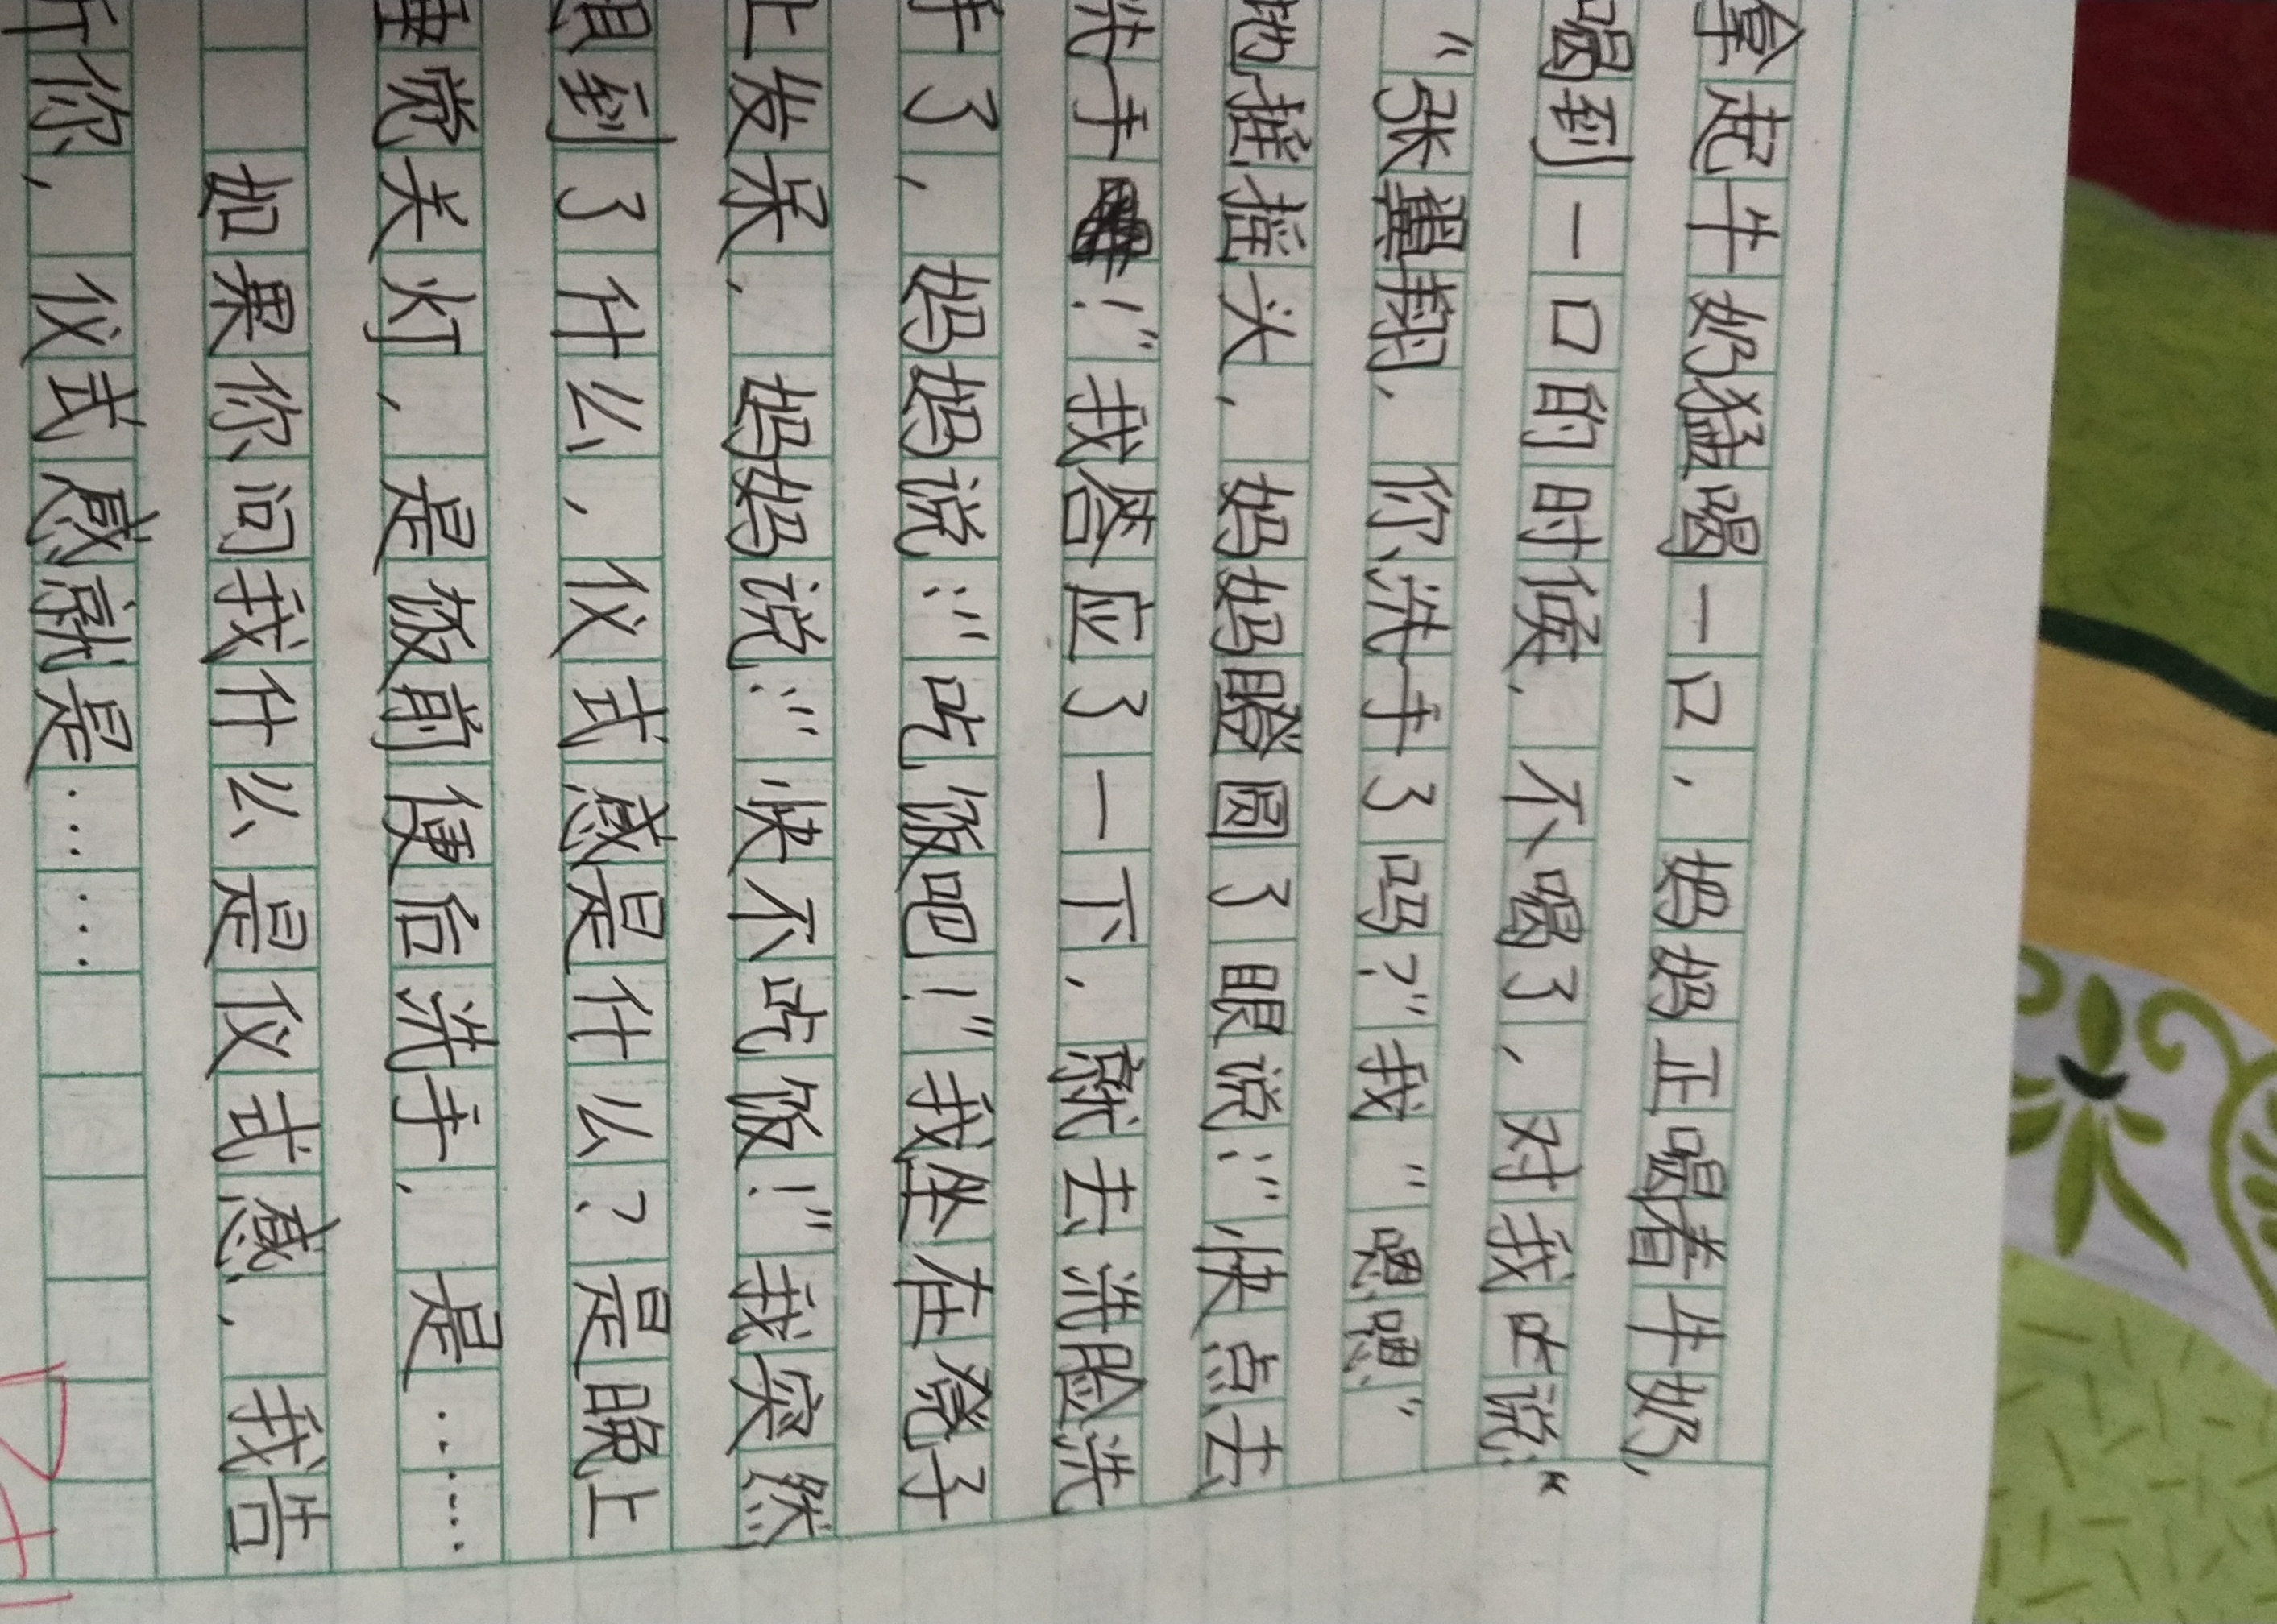 拿起牛奶猛喝一口，妈妈正喝着牛奶，
喝到一口的时候，不喝了，对我吃说：“
“张冀翔，你洗手了吗？”我“嗯嗯”
地摇摇头，妈妈瞪圆了眼说：“快点去
洗手！”我答应了一下，就去洗脸洗
手了，妈妈说：“吃饭吧！”我坐在凳子
上发呆，妈妈说：“快不吃饭！”我突然
想到了什么，仪式感是什么？是晚上
睡觉关灯，是饭前便后洗手，是……
如果你问我什么是仪式感，我告
诉你，仪式感就是……